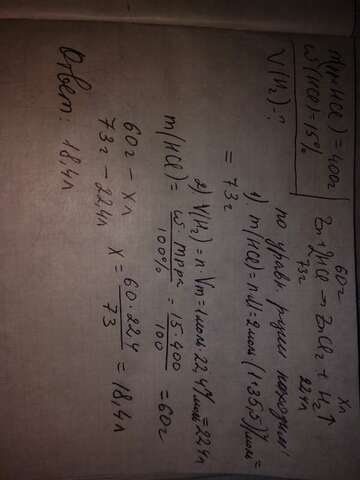 m(ppHCl) = 400г
ω(HCl) = 15%
V(H₂) - ?
60г хл
Zn + 2HCl → ZnCl₂ + H₂↑
73г 22,4л
по уравн. р-ции находим:
1) m(HCl) = n·M = 2моль·(1+35,5)г/моль =
= 73г
2) V(H₂) = n·Vm = 1моль·22,4л/моль = 22,4л
m(HCl) = ω·mрра / 100% = 15·400 / 100 = 60г
60г - хл
73г - 22,4л х = 60·22,4 / 73 = 18,4л
Ответ: 18,4л